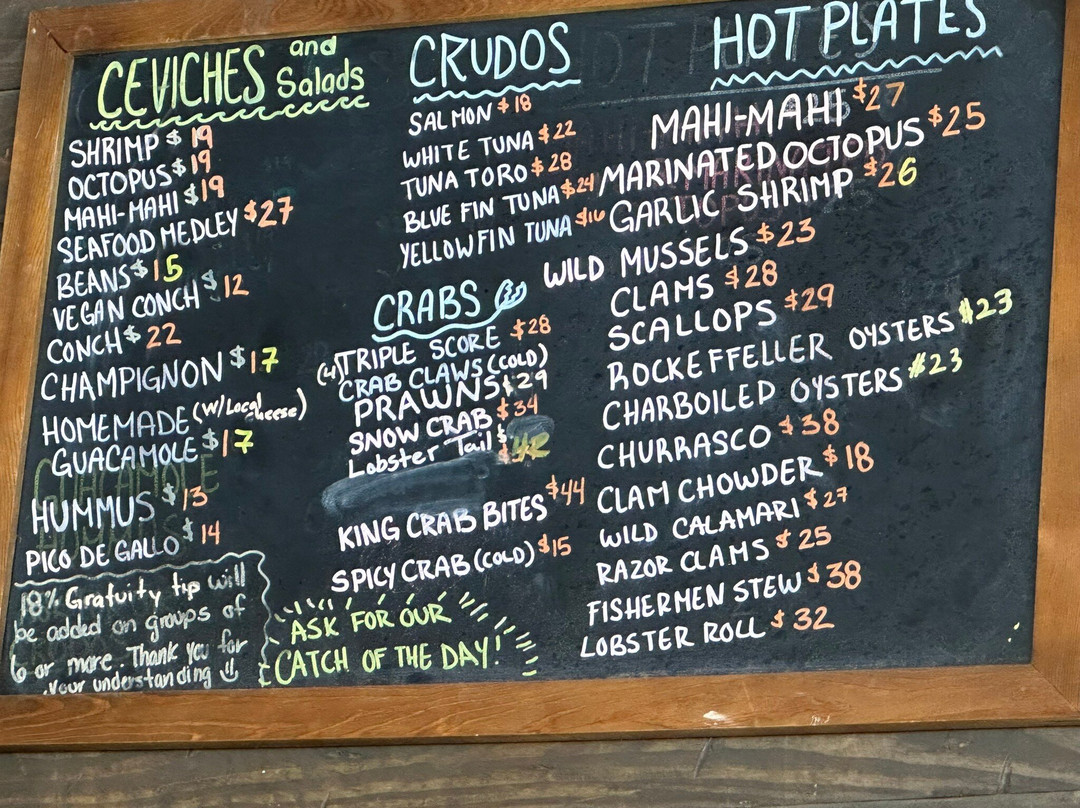 CEVICHES and Salads
SHRIMP $ 19
OCTOPUS $ 19
MAHI-MAHI $ 19
SEAFOOD MEDLEY $27
BEANS $ 15
VEGAN CONCH $ 12
CONCH $ 22
CHAMPIGNON $17
HOMEMADE (w/Local cheese)
GUACAMOLE $17
HUMMUS $13
PICO DE GALLO $ 14
18% Gratuity tip will
be added on groups of
6 or more. Thank you for
your understanding
CRUDOS
SALMON $ 18
WHITE TUNA $ 22
TUNA TORO $ 28
BLUE FIN TUNA $24
YELLOWFIN TUNA $16
CRABS
TRIPLE SCORE $28
(4) CRAB CLAWS (COLD)
PRAWNS $ 29
SNOW CRAB $ 34
Lobster Tail $
KING CRAB BITES $44
SPICY CRAB (COLD) $15
ASK FOR OUR
CATCH OF THE DAY!
HOT PLATES
MAHI-MAHI $27
MARINATED OCTOPUS $25
GARLIC SHRIMP $26
WILD MUSSELS $23
CLAMS $28
SCALLOPS $29
ROCKEFFELLER OYSTERS $23
CHARBOILED OYSTERS $23
CHURRASCO $38
CLAM CHOWDER $ 18
WILD CALAMARI $ 27
RAZOR CLAMS $ 25
FISHERMEN STEW $ 38
LOBSTER ROLL $ 32